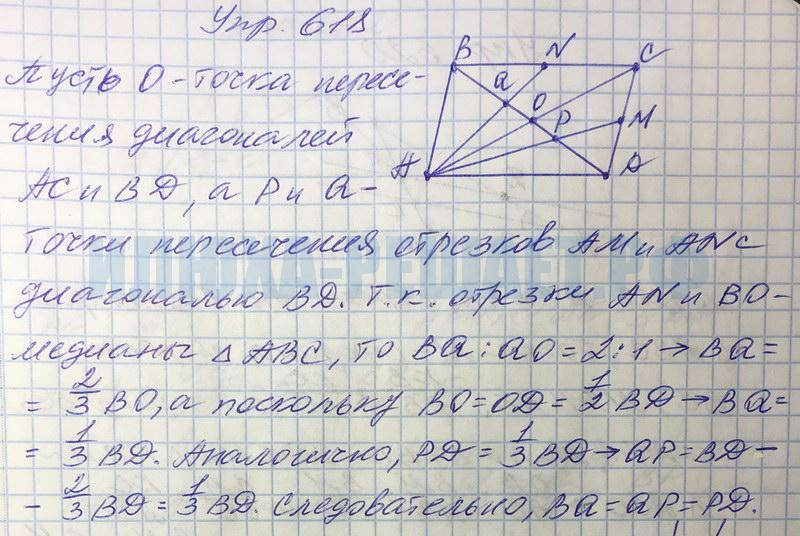 Упр. 618
Пусть О - точка пересе-
чения диагоналей
АС и BD, а P и Q -
точки пересечения отрезков AM и AN с
диагональю BD. Т.к. отрезки AN и BO -
медианы △ ABC, то BQ : QO = 2 : 1 → BQ =
= 2/3 BO, а поскольку BO = OD = 1/2 BD → BQ =
= 1/3 BD. Аналогично, PD = 1/3 BD → QP = BD -
- 2/3 BD = 1/3 BD. Следовательно, BQ = QP = PD.
B N C
Q O P M
A D